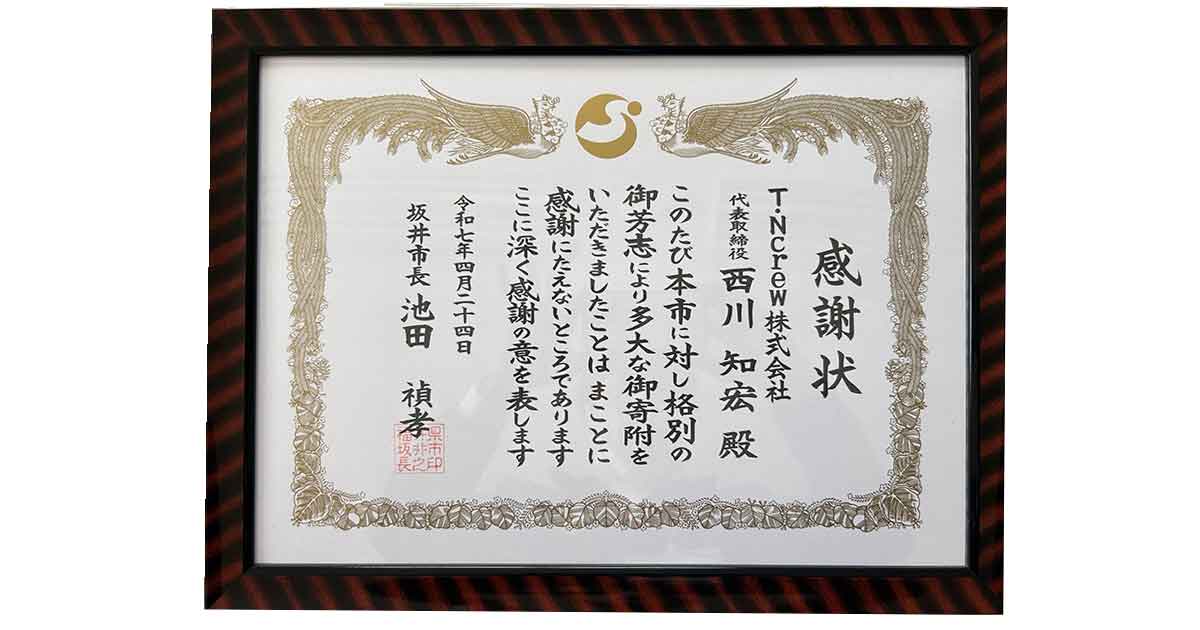 感謝状
T・Ncrew株式会社
代表取締役 西川 知宏 殿
このたび本市に対し格別の
御芳志により多大な御寄附を
いただきましたことは まことに
感謝にたえないところであります
ここに深く感謝の意を表します
令和七年四月二十四日
坂井市長 池田 禎孝